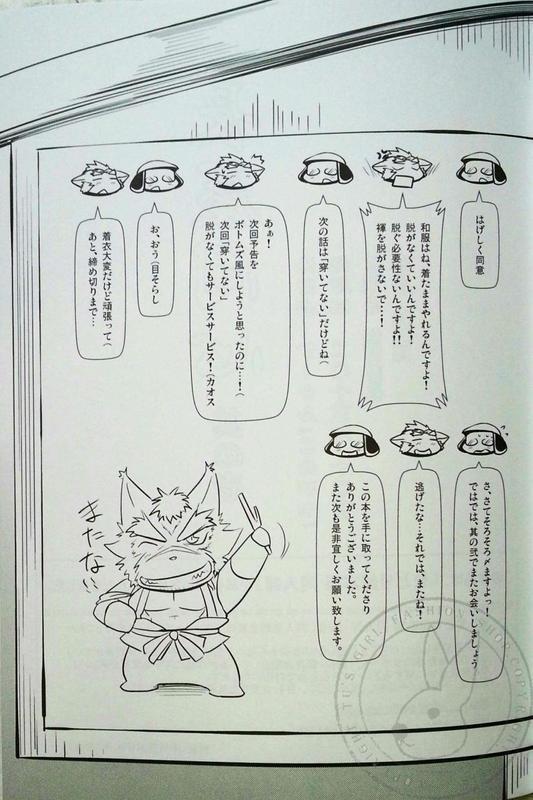 はげしく同意
和服はね、着たままやれるんですよ！
脱がなくていいんですよ！
脱ぐ必要性ないんですよ!!
褌を脱がさないで…！
次の話は「穿いてない」だけどね（
あぁ！
次回予告を
ボトムズ風にしようと思ったのに…！（
次回「穿いてない」
脱がなくてもサービスサービス！（カオス
お、おう（目そらし
着衣大変だけど頑張って（
あと、締め切りまで…
さ、さてそろそろ〆ますよっ！
ではでは、其の弐でまたお会いしましょう
逃げたな…それでは、またね！
この本を手に取ってくださり
ありがとうございました。
また次も是非宜しくお願い致します。
またない
TU'S GIRL FASHION SHOP COPYRIGHT